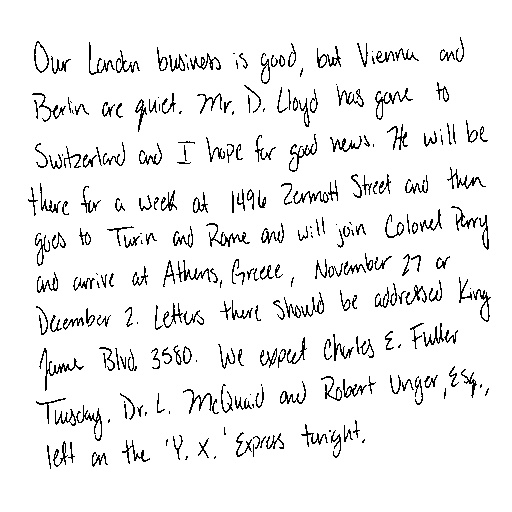 Our London business is good, but Vienna and
Berlin are quiet. Mr. D. Lloyd has gone to
Switzerland and I hope for good news. He will be
there for a week at 1496 Zermott Street and then
goes to Turin and Rome and will join Colonel Parry
and arrive at Athens, Greece, November 27 or
December 2. Letters there should be addressed King
James Blvd. 3580. We expect Charles E. Fuller
Tuesday. Dr. L. McQuaid and Robert Unger, Esq.,
left on the 'Y. X.' Express tonight.